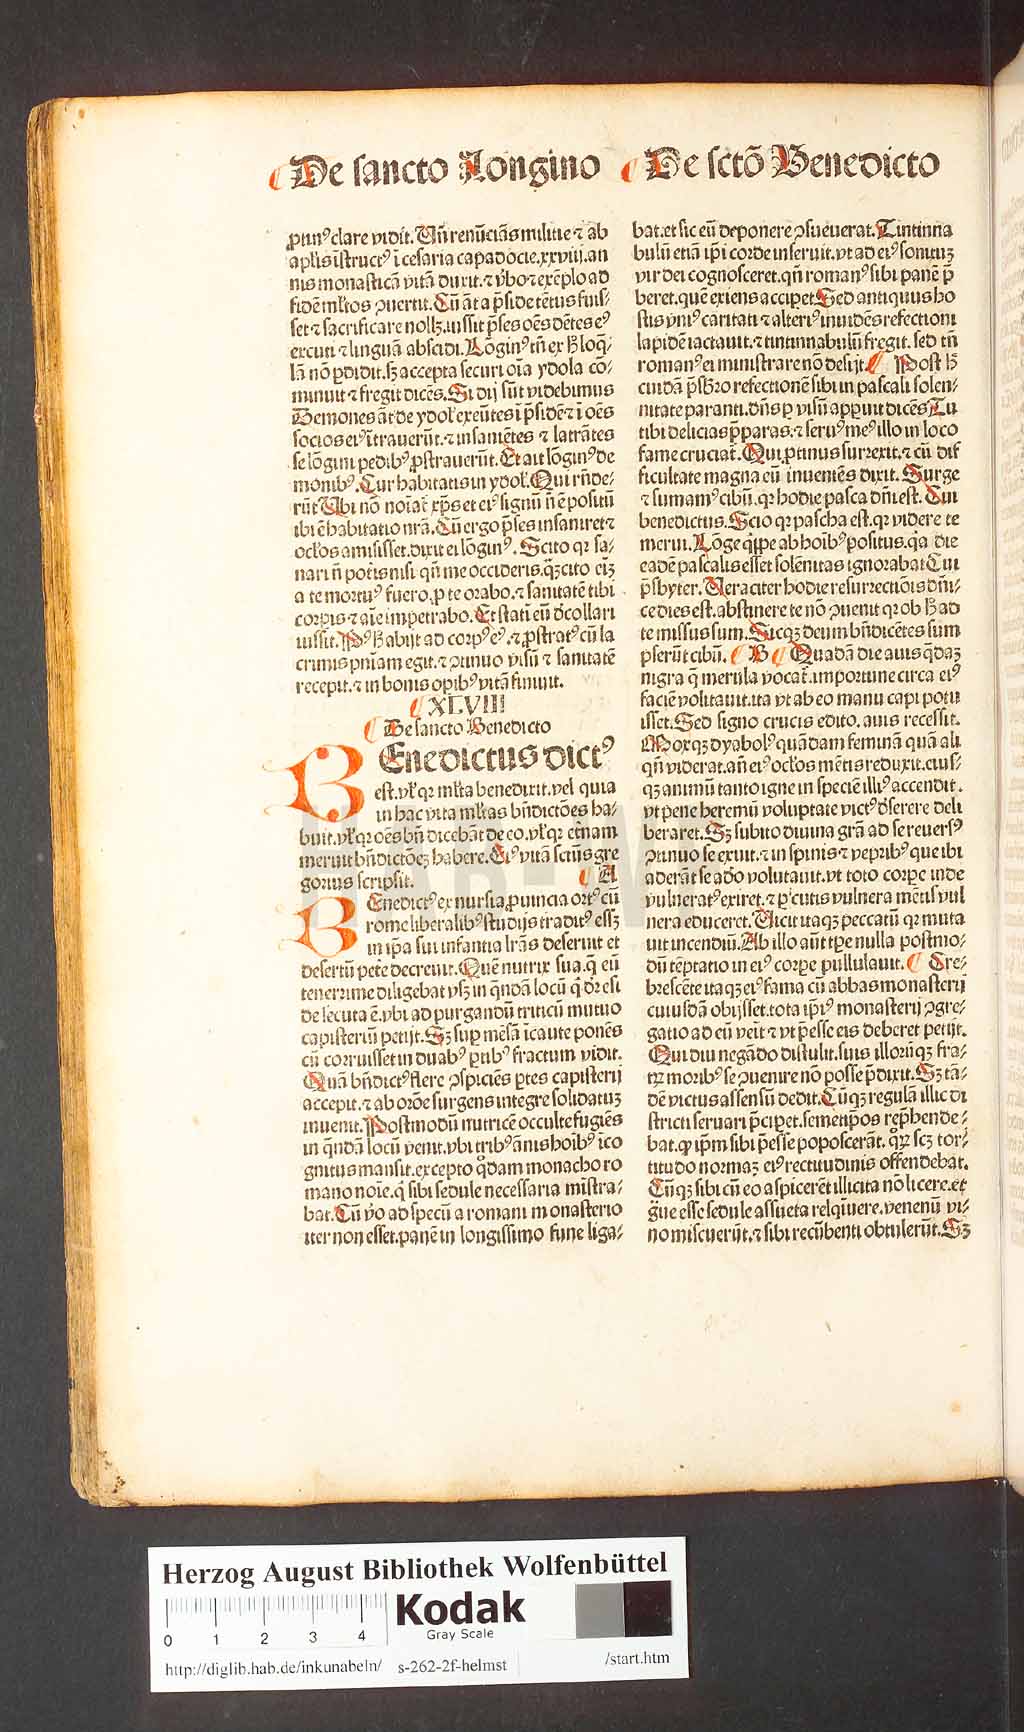 De sancto Longino
De sctō Benedicto
ꝓtinꝰ clare vidit. Vñ renūciās militie ⁊ ab
aplis īstructꝰ ī cesaria capadocie. xxviij. an
nis monasticā vitā duxit. ⁊ v̓bo ⁊ exēplo ad
fidē ml̓tos ꝯuertit. Cū āt a p̄side tētus fuis⸗
set ⁊ sacrificare nollꝫ. iussit p̄ses oēs dētes eꝰ
excuti ⁊ linguā abscidi. Lōginꝰ tn̄ ex h̓ loq̄⸗
lā nō ꝑdidit. sꝫ accepta securi oīa ydola cō⸗
minuit ⁊ fregit dicēs. Si dij sūt videbimus
Demones āt de ydol̓ exeūtes ī p̄sidē ⁊ ī oēs
socios eiꝰ ītrauerūt. ⁊ insaniētes ⁊ latrātes
se lōgini pedibꝰ ꝓstrauerūt. Et ait lōginꝰ de
monibꝰ. Cur habitatis in ydol̓. Qui rn̄de⸗
rūt Vbi nō noīat̄ xp̄s et eiꝰ signū nē positū
ibi ē habitatio nr̄a. Cū ergo p̄ses insaniret ⁊
oc̄los amisisset. dixit ei lōginꝰ. Scito qꝛ sa⸗
nari n̄ pot̓is nisi qn̄ me occideris. qꝫcito em̄
a te mortuꝰ fuero. ꝓ te orabo. ⁊ sanitatē tibi
corꝑis ⁊ aīe impetrabo. Et stati eū d̓collari
iussit. Pꝰ h̓ abijt ad corpꝰ eꝰ. ⁊ ꝓstratꝰ cū la
crimis pn̄iam egit. ⁊ ꝯtinuo visū ⁊ sanitatē
recepit. ⁊ in bonis opibꝰ vitā finiuit.
XLVIII
De sancto Benedicto
BEnedictus dictꝰ
est. vl̓ qꝛ ml̓ta benedixit. vel quia
in hac vita ml̓tas bn̄dictōes ha⸗
buit. vl̓ qꝛ oēs bn̄ dicebāt de eo. vl̓ qꝛ et̓nam
meruit bn̄dictōeꝫ habere. Eiꝰ vitā sctūs gre
gorius scripsit. A
BEnedictꝰ ex nursia ꝓuincia ortꝰ cū
rome liberalibꝰ studijs traditꝰ essꝫ
in ip̄a sui infantia lr̄as deseruit et
desertū pete decreuit. Quē nutrix sua. q̄ eū
tenerrime diligebat vsqꝫ in q̄ndā locū q̄ dr̄ esi
de secuta ē. vbi ad purgandū triticū mutuo
capisteriū petijt. Sꝫ suꝑ mēsā īcaute ponēs
cū corruisset in duabꝰ ꝑtibꝰ fractum vidit.
Quā bn̄dictꝰ flere ꝯspiciēs ꝑtes capisterij
accepit. ⁊ ab orōe surgens integre solidatuꝫ
inuenit. Postmodū nutricē occulte fugiēs
in q̄ndā locū venit. vbi tribꝰ ānis hoībꝰ ico
gnitus mansit. excepto q̊dam monacho ro
mano noīe. q̇ sibi sedule necessaria mīstra⸗
bat. Cū v̓o ad specū a romani monasterio
iter non esset. panē in longissimo fune liga⸗
bat. et sic eū deponere ꝯsueuerat. Tintinna
bulū etiā ip̄i corde inseruit. vt ad eiꝰ sonituꝫ
vir dei cognosceret. qn̄ romanꝰ sibi panē p̄
beret. quē exiens acciꝑet. Sed antiquus ho
stis vniꝰ caritati ⁊ alteriꝰ inuidēs refectioni
lapidē iactauit. ⁊ tintinnabulū fregit. sed tn̄
romanꝰ ei ministrare nō desijt. Post h̓
cuidā p̄sb̓ro refectionē sibi in pascali solen⸗
nitate paranti. dn̄s ꝑ visū apꝑuit dicēs. Tu
tibi delicias p̄paras. ⁊ seruꝰ meꝰ illo in loco
fame cruciat̄. Qui ꝓtinus surrexit. ⁊ cū dif
ficultate magna eū inuentēs dixit. Surge
⁊ sumamꝰ cibū. qꝛ hodie pasca dn̄i est. Cui
benedictus. Scio qꝛ pascha est. qꝛ videre te
merui. Lōge q̇ppe ab hoībꝰ positus. qꝛ die
eadē pascalis esset solēnitas ignorabat Cui
p̄sbyter. Veraciter hodie resurrectiōis dn̄i⸗
ce dies est. abstinere te nō ꝯuenit qꝛ ob h̓ ad
te missus sum. Sicqꝫ deum bn̄dicētes sum
pserūt cibū. B Quadā die auis q̄daꝫ
nigra q̄ merula vocat̄. importune circa eiꝰ
faciē volitauit. ita vt ab eo manu capi potu
isset. Sed signo crucis edito. auis recessit.
Moxqꝫ dyabolꝰ quādam feminā quā ali
qn̄ viderat. an̄ eiꝰ oc̄los mētis reduxit. eius⸗
qꝫ animū tanto igne in specie illiꝰ accendit.
vt pene heremū voluptate victꝰ d̓serere deli
beraret. Sꝫ subito diuina gr̄a ad se reuersꝰ
ꝯtinuo se exuit. ⁊ in spinis ⁊ vepribꝰ que ibi
aderāt se adeo volutauit. vt toto corꝑe inde
vulneratꝰ exiret. ⁊ ꝑ cutis vulnera mētis vul
nera educeret. Vicit itaqꝫ peccatū qꝛ muta
uit incendiū. Ab illo aūt tꝑe nulla postmo⸗
dū tēptatio in eiꝰ corꝑe pullulauit. Cre⸗
brescēte itaqꝫ eiꝰ fama cū abbas monasterij
cuiusdā obijsset. tota ip̄iꝰ monasterij ꝯgre⸗
gatio ad eū veīt ⁊ vt p̄esse eis deberet petijt.
Qui diu negādo distulit. suis illorūqꝫ fra⸗
tꝝ moribꝰ se ꝯuenire nō posse p̄dixit. Sꝫ tā⸗
dē victus assensū dedit. Cūqꝫ regulā illic di
stricti seruari p̄ciꝑet. semetip̄os rep̄hende⸗
bat. ꝙ ip̄m sibi p̄esse poposcerāt. qꝛ scꝫ tor⸗
titudo normaꝫ eiꝰ rectitudinis offendebat.
Cūqꝫ sibi cū eo aspicerēt illicita nō licere. et
g̈ue esse sedule assueta relq̇uere. venenū vi⸗
no miscuerūt. ⁊ sibi recūbenti obtulerūt. Sꝫ
Herzog August Bibliothek Wolfenbüttel
0 1 2 3 4
Kodak
Gray Scale
http://diglib.hab.de/inkunabeln/ s-262-2f-helmst /start.htm